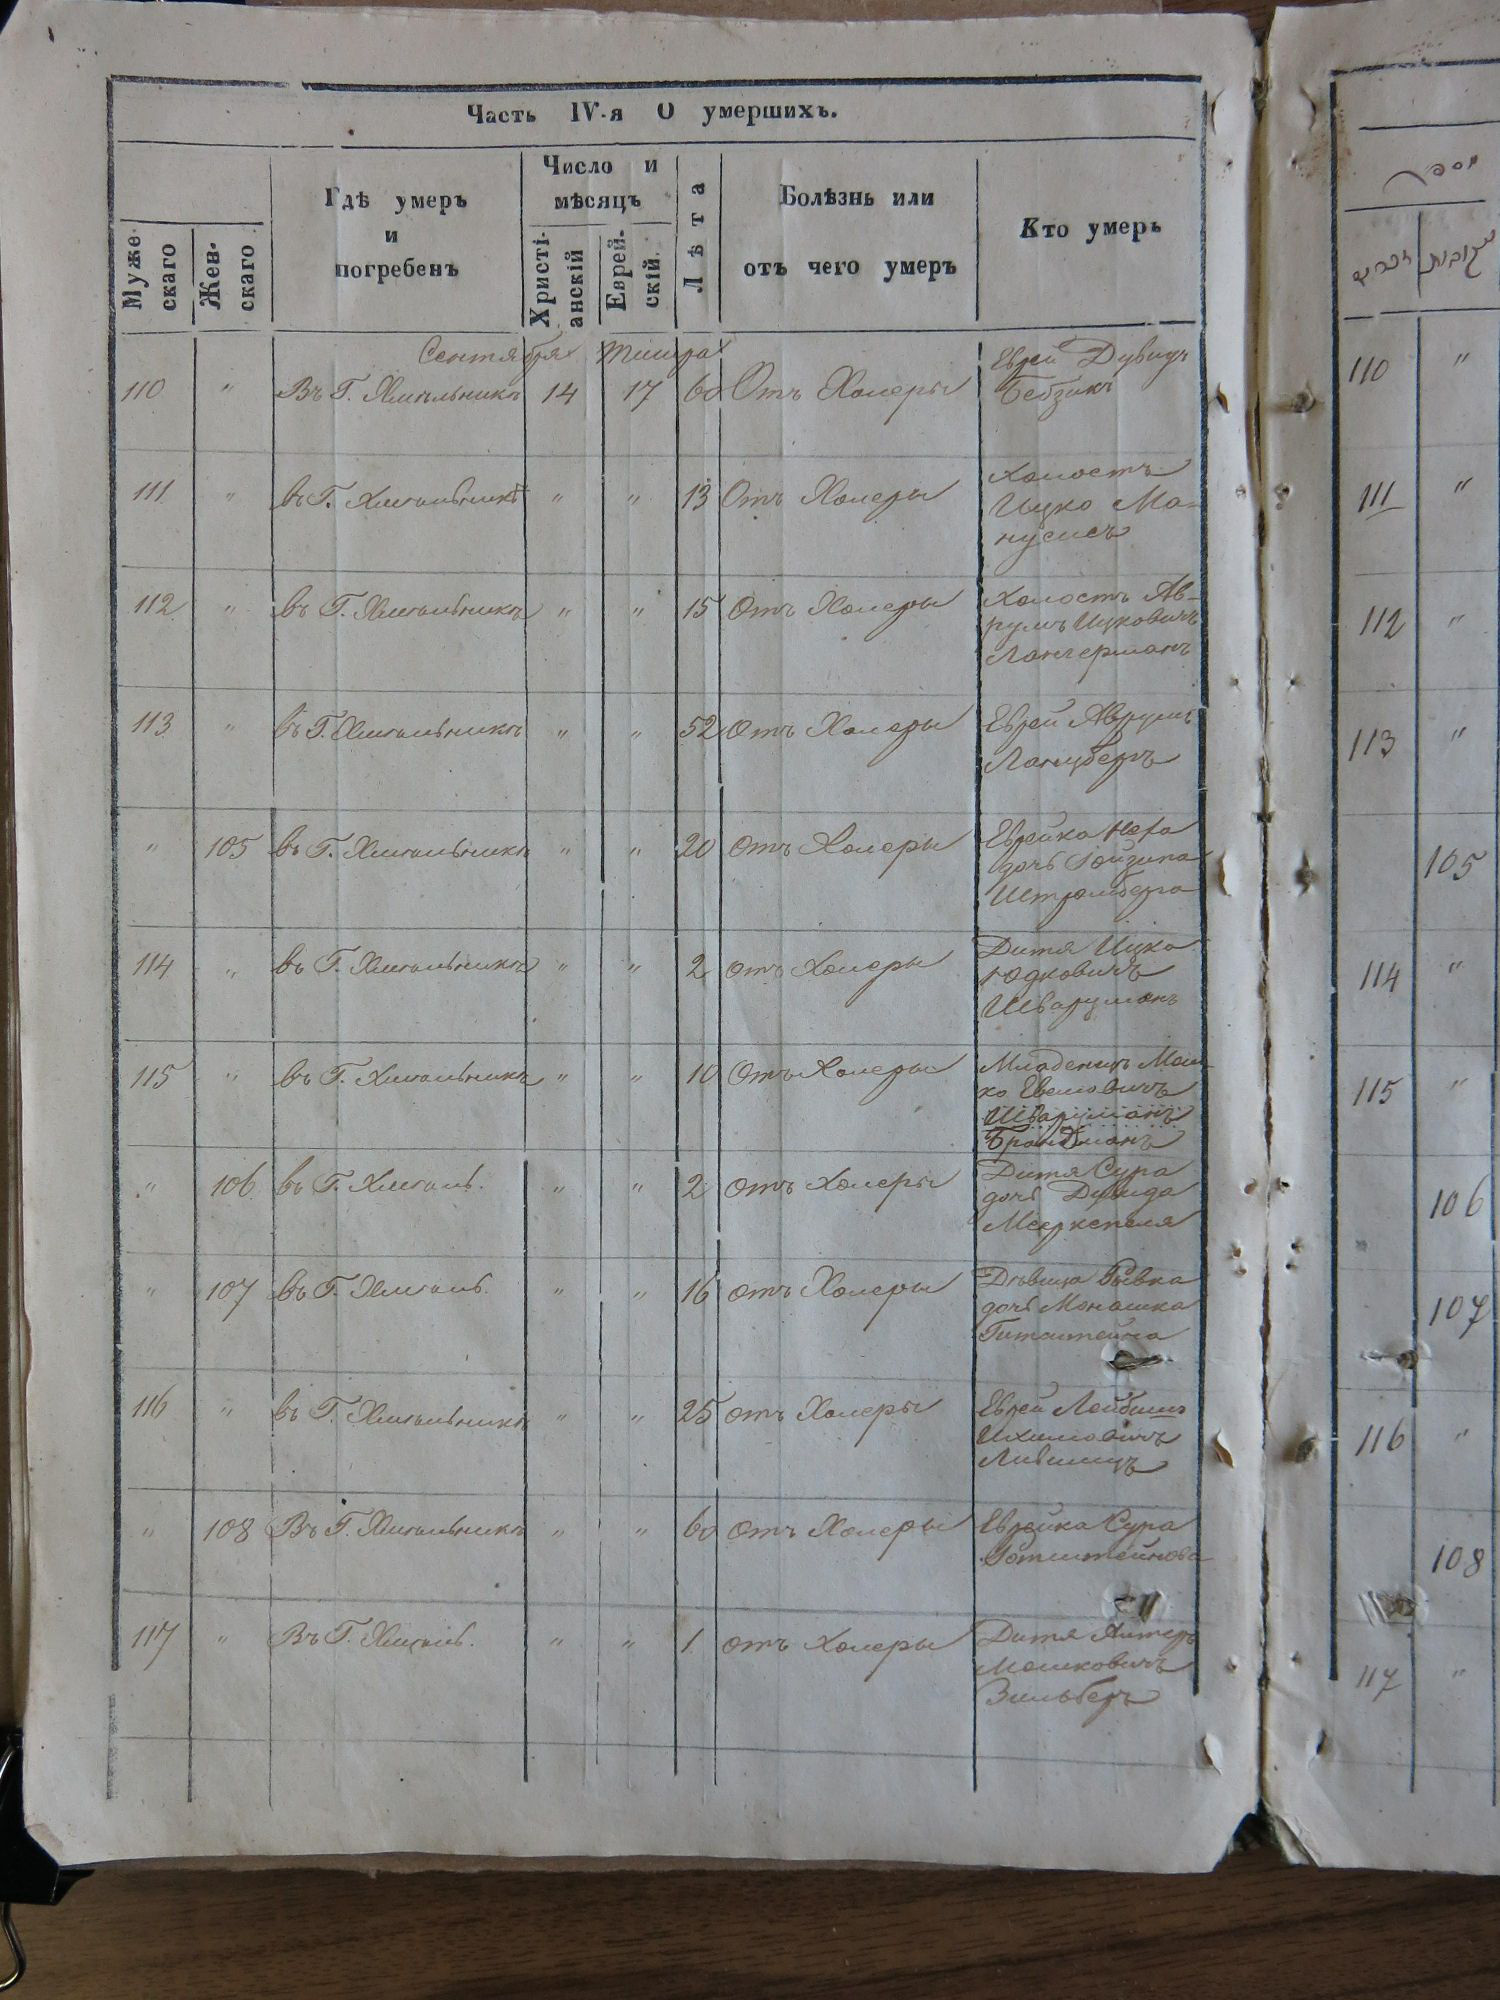 Часть IV-я О умершихъ.
Муже-
скаго
Жен-
скаго
Гдѣ умеръ
и
погребенъ
Число и
мѣсяцъ
Христі-
анскій
Еврей-
скій.
Лѣта
Болѣзнь или
отъ чего умеръ
Кто умеръ
Сентября Тишра
110 " Въ Г. Хмѣльникѣ 14 17 60 Отъ Холеры Еврей Дувидъ
111 " въ Г. Хмѣльникѣ " " 13 Отъ Холеры Холостъ
Ицко Ма-
нусисъ
112 " въ Г. Хмѣльникѣ " " 15 Отъ Холеры Холостъ Ав-
румъ Ицковичъ
Лангерманъ
113 " въ Г. Хмѣльникѣ " " 52 Отъ Холеры Еврей Аврумъ
Ланцберъ
" 105 въ Г. Хмѣльникѣ " " 20 отъ Холеры Еврейка
дочь
Штромберга
114 " въ Г. Хмѣльникѣ " " 2 отъ Холеры Дитя Ицко
Юдковичъ
Шварцманъ
115 " въ Г. Хмѣльникѣ " " 10 Отъ Холеры Младенецъ Мош-
ко
Шварцманъ
Брандманъ
" 106 въ Г. Хмѣль. " " 2 отъ Холеры Дитя Сура
дочь Дувида
" 107 въ Г. Хмѣль. " " 16 отъ Холеры Дѣвица Рывка
дочь Монашка
116 " въ Г. Хмѣльникѣ " " 25 отъ Холеры Еврей Лейбишъ
Лившицъ
" 108 Въ Г. Хмѣльникѣ " " 60 отъ Холеры Еврейка Сура
117 " Въ Г. Хмѣль. " " 1 отъ Холеры Дитя Алтеръ
Мошковичъ
Зильберъ
110 "
111 "
112 "
113 "
105
114 "
115 "
106
107
116 "
108
117 "